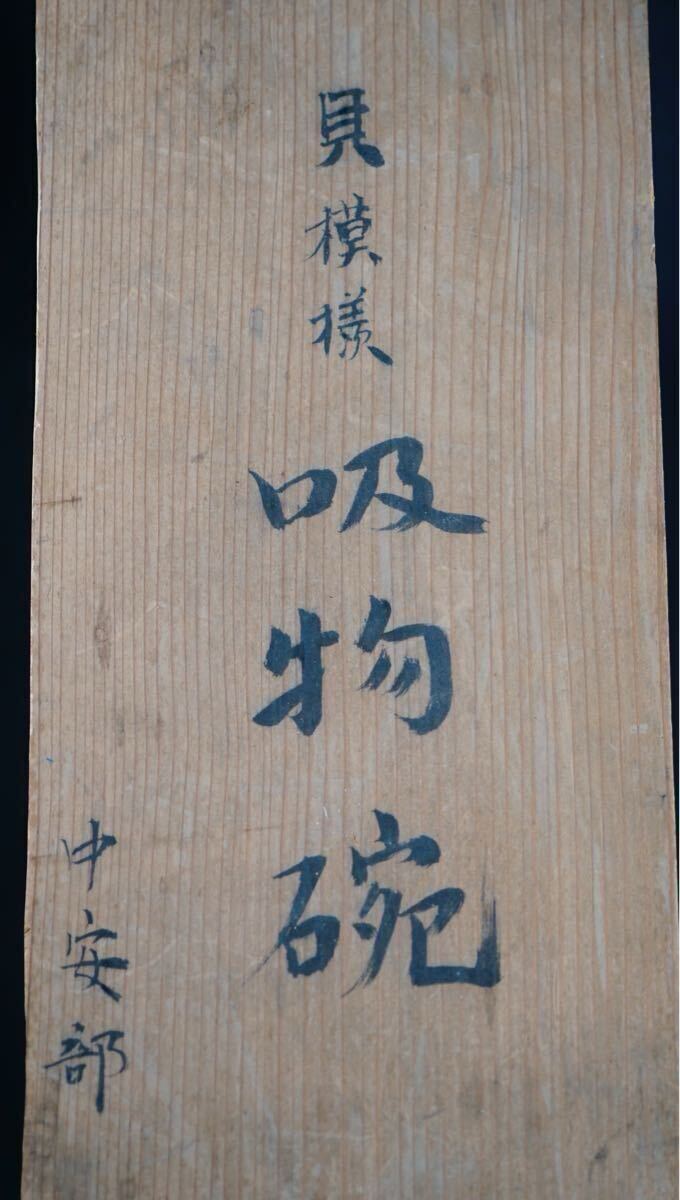 貝模様
吸物碗
中安部